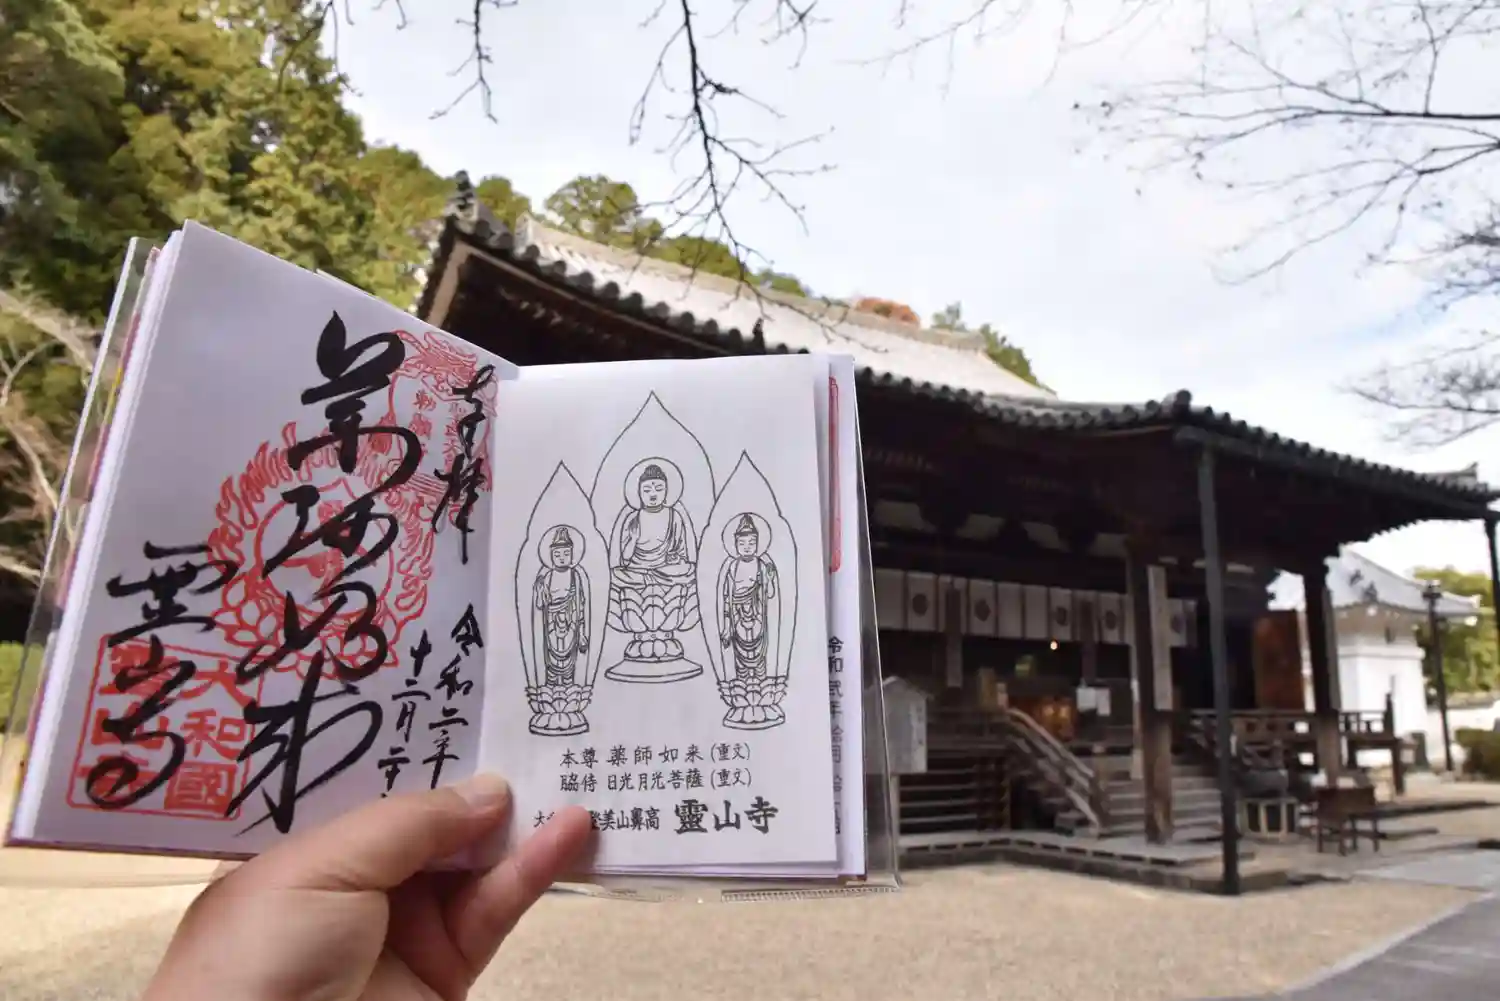 奉拝
令和二年
十二月二十
薬師如来
霊山寺
大和國
霊山寺
本尊 薬師如来 (重文)
脇侍 日光月光菩薩 (重文)
登美山鼻高 靈山寺
令和弐年